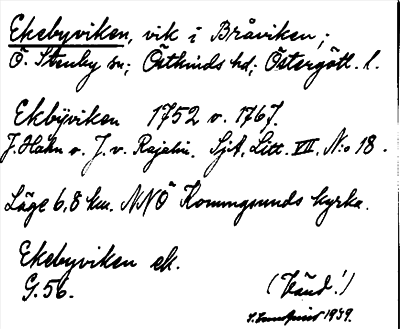 Ekebyviken, vik i Bråviken,;
Ö. Stenby sn; Östkinds hd; Östergötl. l.
Ekbÿviken 1752 v. 1767.
J. Hahn v. J. v. Rajalin. Sjk, Litt. VII, N:o 18.
Läge 6,8 km. NNÖ Konungsunds kyrka.
Ekebyviken ek.
G. 56.
(Vänd!)
1939.